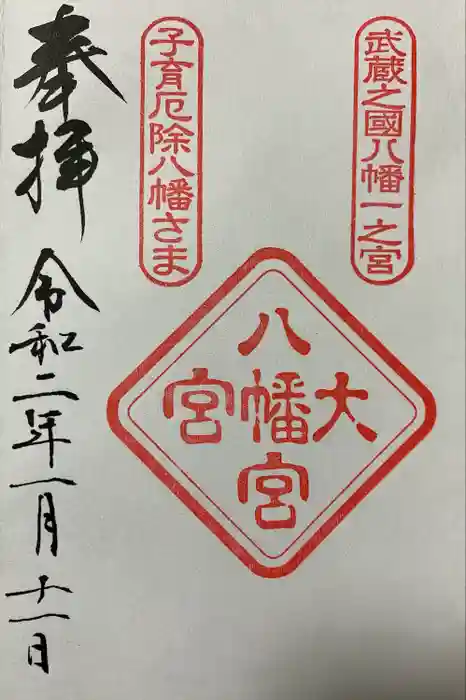 武蔵之國八幡一之宮
子育厄除八幡さま
大
八幡宮
宮
奉拝
令和二年一月十一日